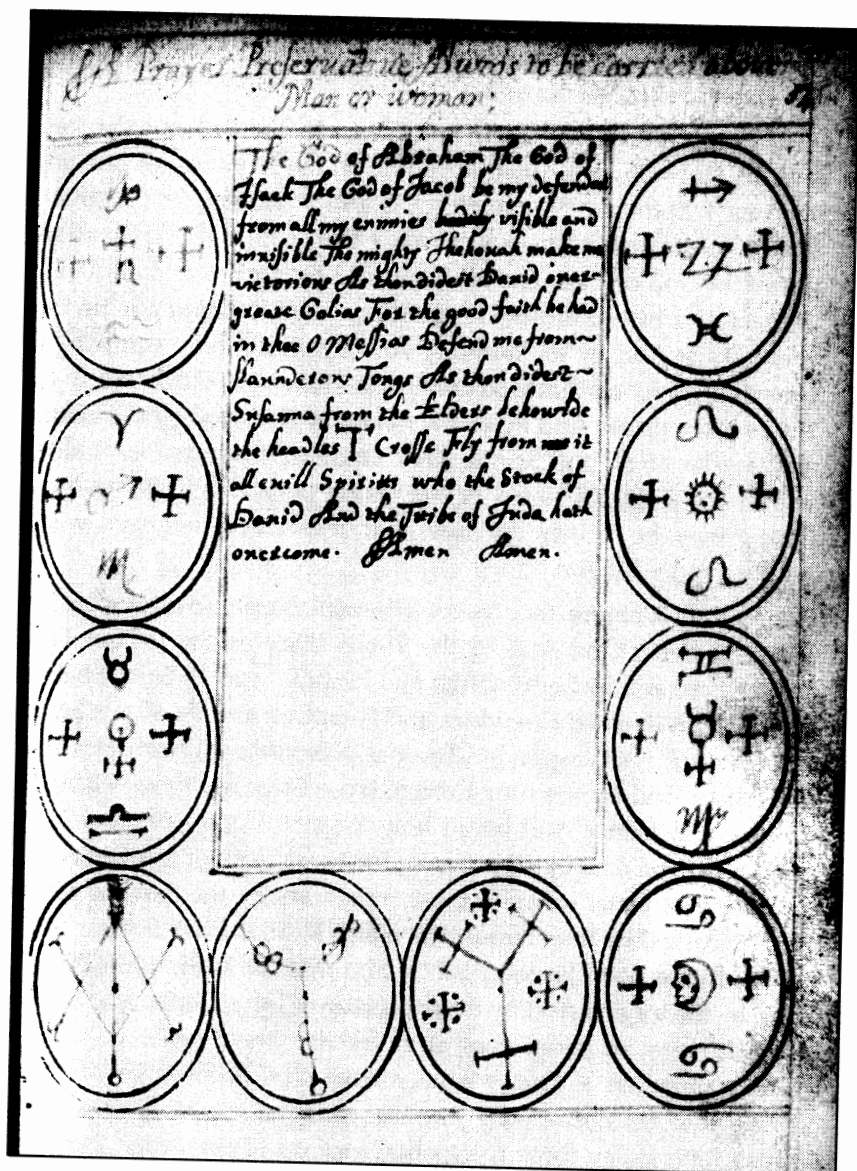 A Prayer Preseruatiue Alwais to be carried about
Man or woman;
The God of Abraham The God of
Isack The God of Jacob be my defendet
from all my enimies visible and
invisible The mighty Jhehouah make me
victorious As thou didest Dauid ouer
greate Golias For the good faith he had
in thee O Messias Defend me from~
slaunderous Tongs As thou didest~
Susanna from the Elders behowlde
the headles T Crosse Fly from it
all euill Spiritts who the Stock of
Dauid And the Tribe of Juda hath
ouercome. Amen Amen.